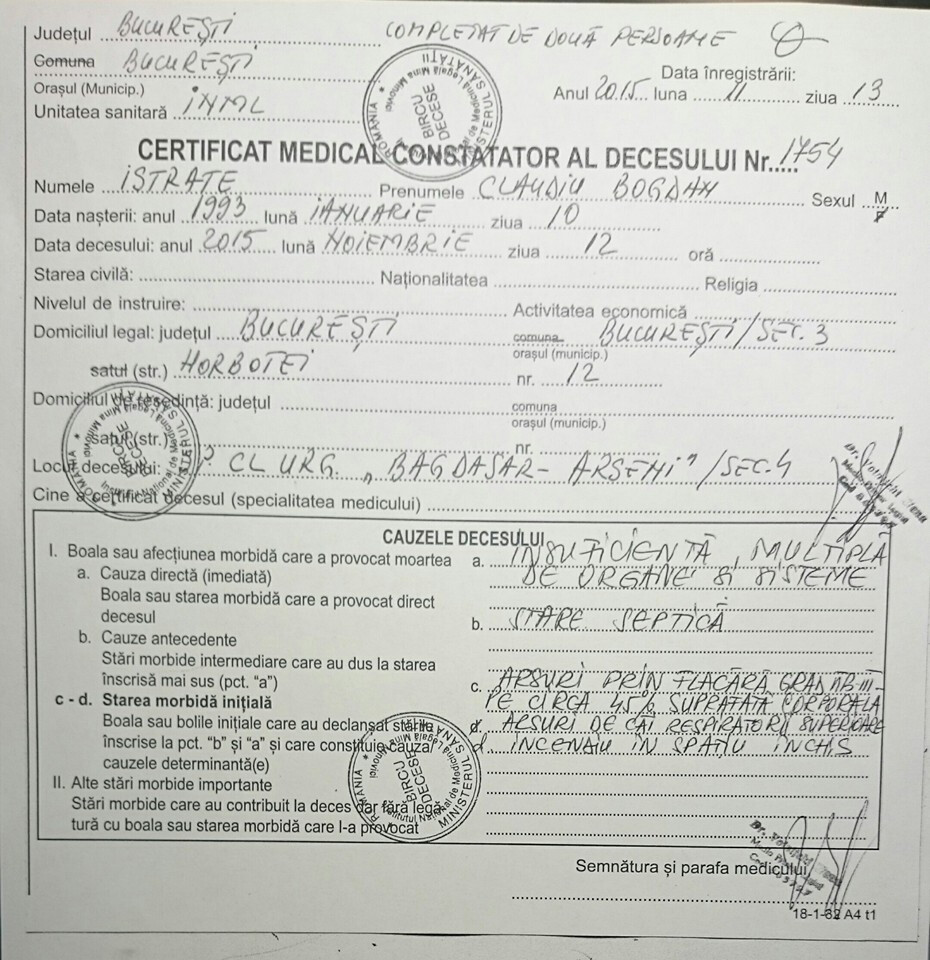 Județul BUCUREȘTI COMPLETAT DE DOUĂ PERSOANE
Comuna BUCUREȘTI
Orașul (Municip.)
Data înregistrării:
Anul 2015 luna 11 ziua 13
Unitatea sanitară INML
CERTIFICAT MEDICAL CONSTATATOR AL DECESULUI Nr. 1754
Numele ISTRATE Prenumele CLAUDIU BOGDAN Sexul M F
Data nașterii: anul 1993 lună IANUARIE ziua 10
Data decesului: anul 2015 lună NOIEMBRIE ziua 12 oră
Starea civilă: Naționalitatea Religia
Nivelul de instruire: Activitatea economică
Domiciliul legal: județul BUCUREȘTI comuna BUCUREȘTI/SEC. 3
orașul (municip.)
satul (str.) HORBOTEI nr. 12
Domiciliul de reședință: județul comuna
orașul (municip.)
satul (str.) nr.
Locul decesului: CL URG. „BAGDASAR-ARSENI"/SEC.4
Cine a certificat decesul (specialitatea medicului)
CAUZELE DECESULUI
I. Boala sau afecțiunea morbidă care a provocat moartea a. INSUFICIENȚĂ MULTIPLĂ
a. Cauza directă (imediată) DE ORGANE ȘI SISTEME
Boala sau starea morbidă care a provocat direct
decesul b. STARE SEPTICĂ
b. Cauze antecedente
Stări morbide intermediare care au dus la starea
înscrisă mai sus (pct. “a”) c. ARSURI PRIN FLACĂRĂ GRAD IIB-III
c - d. Starea morbidă inițială PE CIRCA 45% SUPRAFATA CORPORALĂ
Boala sau bolile inițiale care au declanșat stările d. ARSURI DE CĂI RESPIRATORII SUPERIOARE
înscrise la pct. “b” și “a” și care constituie cauza/ d. INCENDIU IN SPAȚIU INCHIS
cauzele determinantă(e)
II. Alte stări morbide importante
Stări morbide care au contribuit la deces dar fără legă-
tură cu boala sau starea morbidă care l-a provocat
Semnătura și parafa medicului
18-1-62 A4 t1
ROMÂNIA * MINISTERUL SĂNĂTĂȚII
Institutul Național de Medicină Legală Mina Minovici
BIROU
DECESE